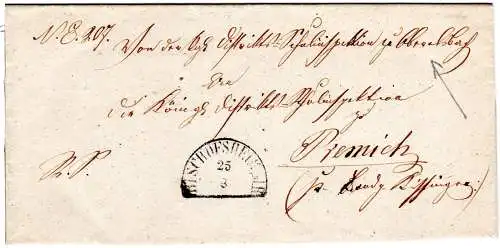 N. E. 207.
Von der Kgl. Distrikts-Schulinspektion zu Oberelsbach
An
die Königl. Distrikts-Schulinspektion
Remich
R. S.
(p. Landg. Kissingen)
BISCHOFSHEIM
25
3